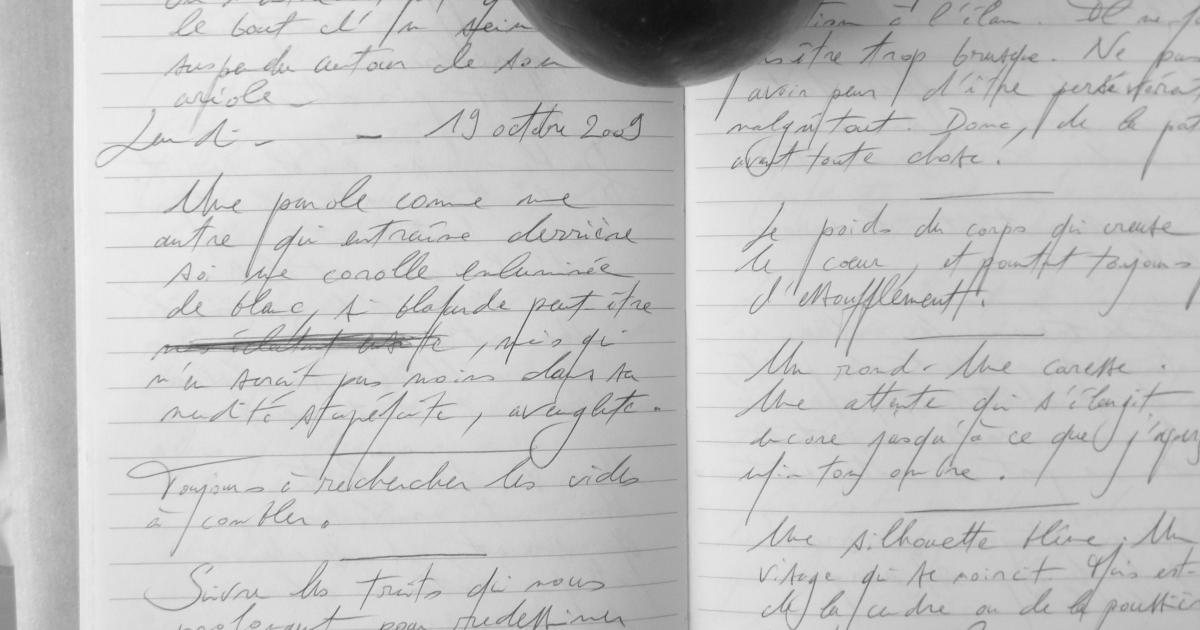 le bout d'un sein
suspendu autour de son
aréole –
Lundi – – 19 octobre 2009
Une parole comme une
autre qui entraîne derrière
soi une corolle enluminée
de blanc, si blafarde peut-être
, mais qui
n'en serait pas moins dans sa
nudité stupéfaite, aveuglante.
Toujours à rechercher les vides
à combler.
Suivre les traits qui nous
prolongent pour redessiner
à l'élan. Il ne
être trop brusque. Ne pas
avoir peur d'être
malgré tout. Donc, de la
avant toute chose.
Le poids du corps qui creuse
le cœur, et pourtant toujours
d'essoufflement.
Un rond. Une caresse.
Une attente qui s'élargit
encore jusqu'à ce que
enfin ton ombre.
Une silhouette blême. Un
visage qui se noircit. Mais est-
de la cendre ou de la poussière